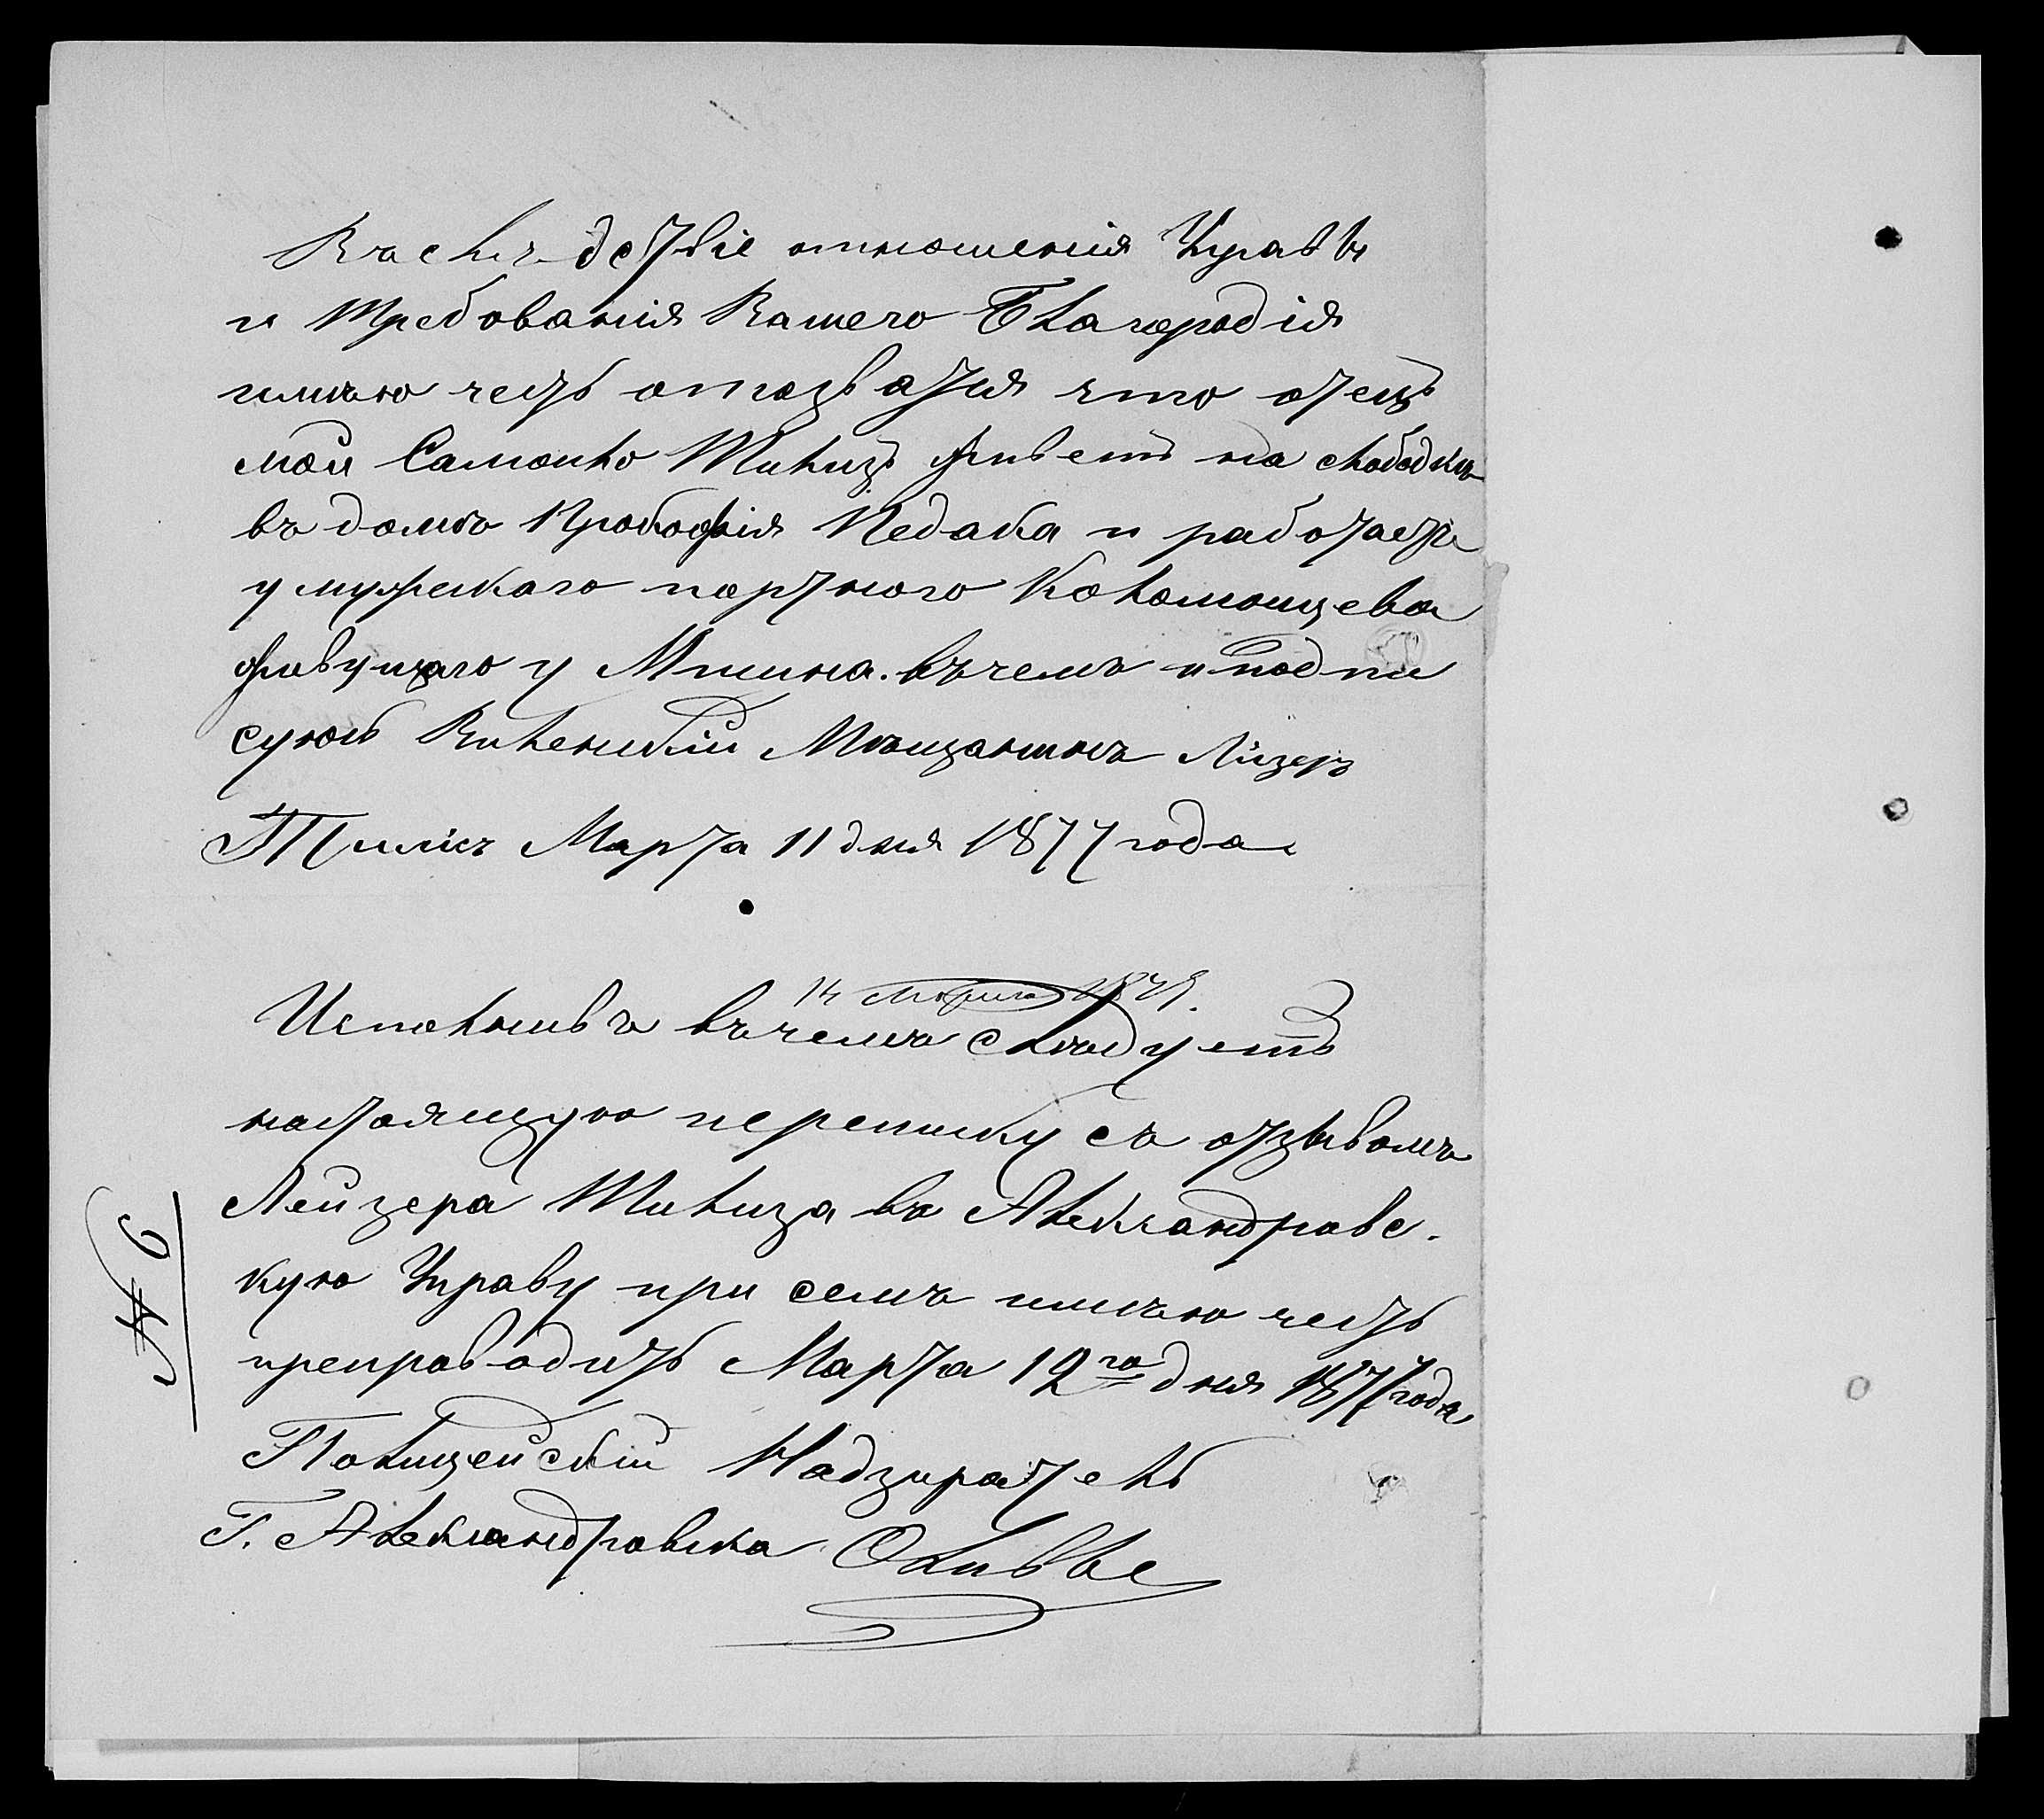 Въслѣдствіе отношенія Управы
и требованія Вашего Благородія
имѣю честь отозватся что отецъ
мой Самойло Тилизъ живетъ на слободкѣ
въ домѣ Прокофія Педака и работаетъ
у мужскаго портного Коломойцева
живущаго у Мишна. въ чемъ и подпи
суюсь Виленскій Мѣщанинъ Лизеръ
Марта 11 дня 1877 года
14 Марта 1877.
Исполнивъ въ чемъ слѣдуетъ
настоящую переписку съ отзывомъ
Лейзера Тилиза въ Александровс.
кую Управу при семъ имѣю честь
препроводить Марта 12го дня 1877 года
№ 6
Полицейскій Надзиратель
Г. Александровска Оливье